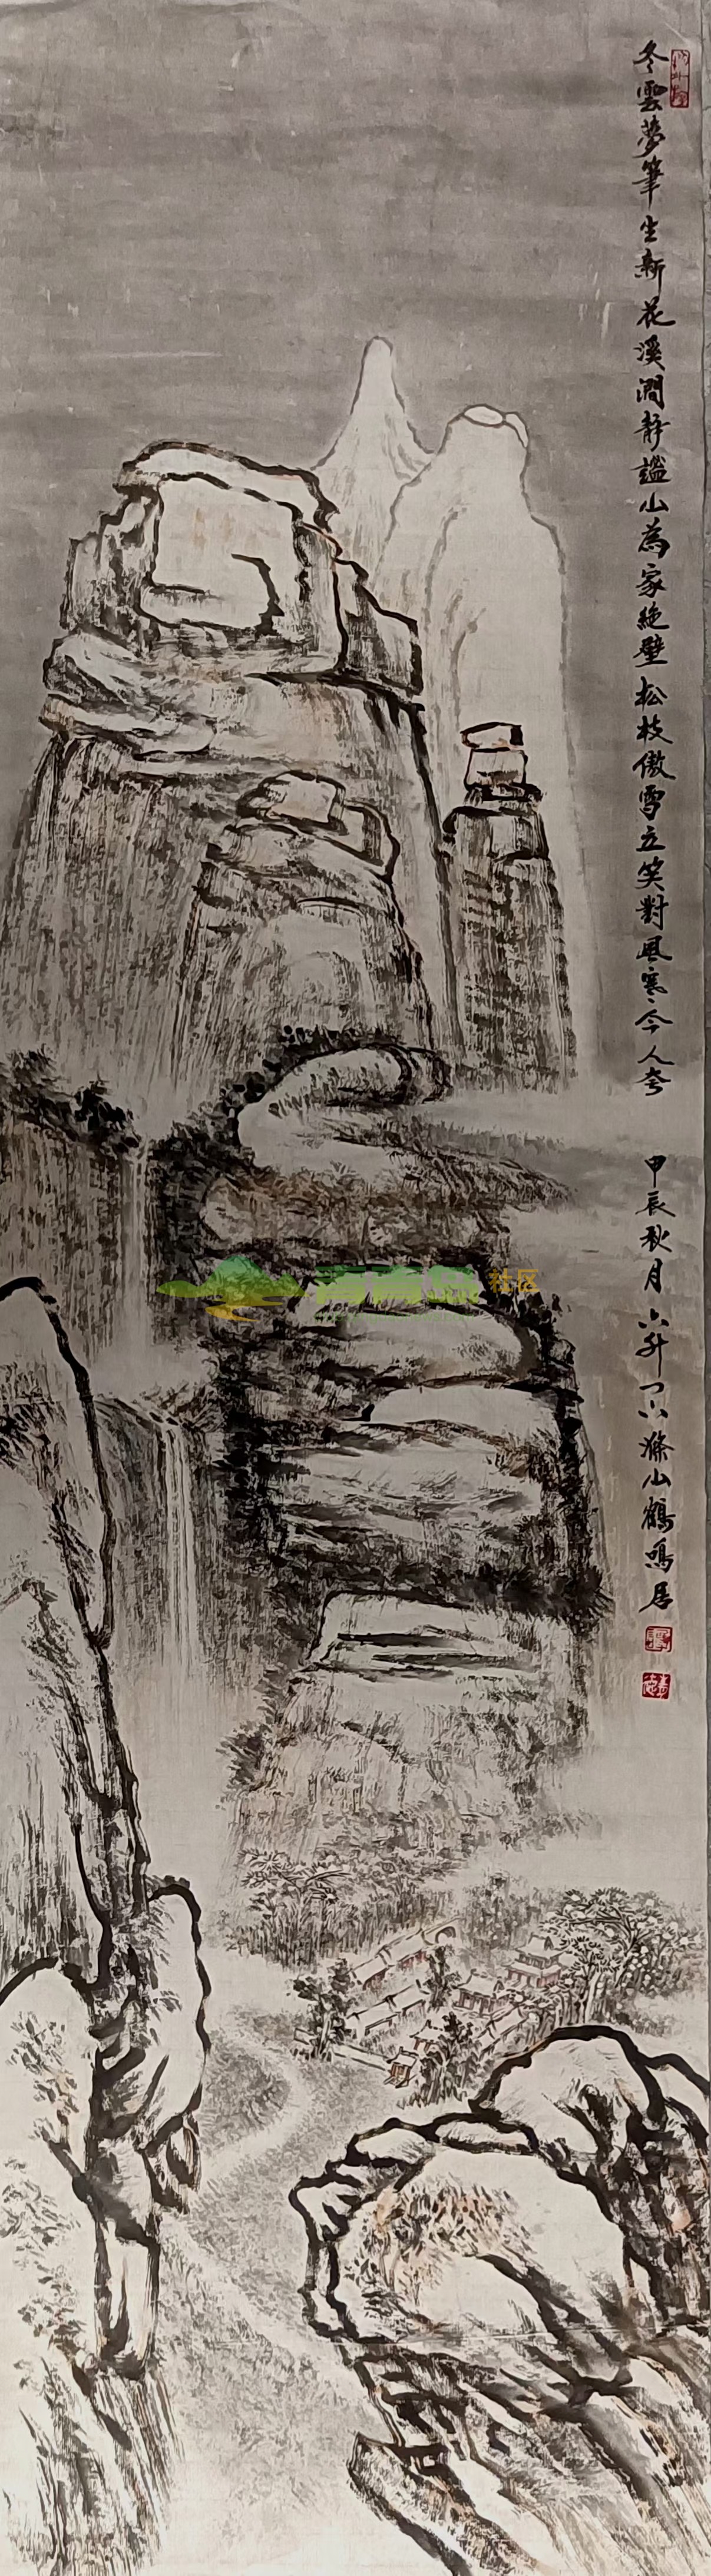 冬雲夢筆生新花溪澗靜謐山為家絶壁松枝傲雪立笑對風寒令人夸
甲辰秋月
滌山鶴鳴居
青青岛社区